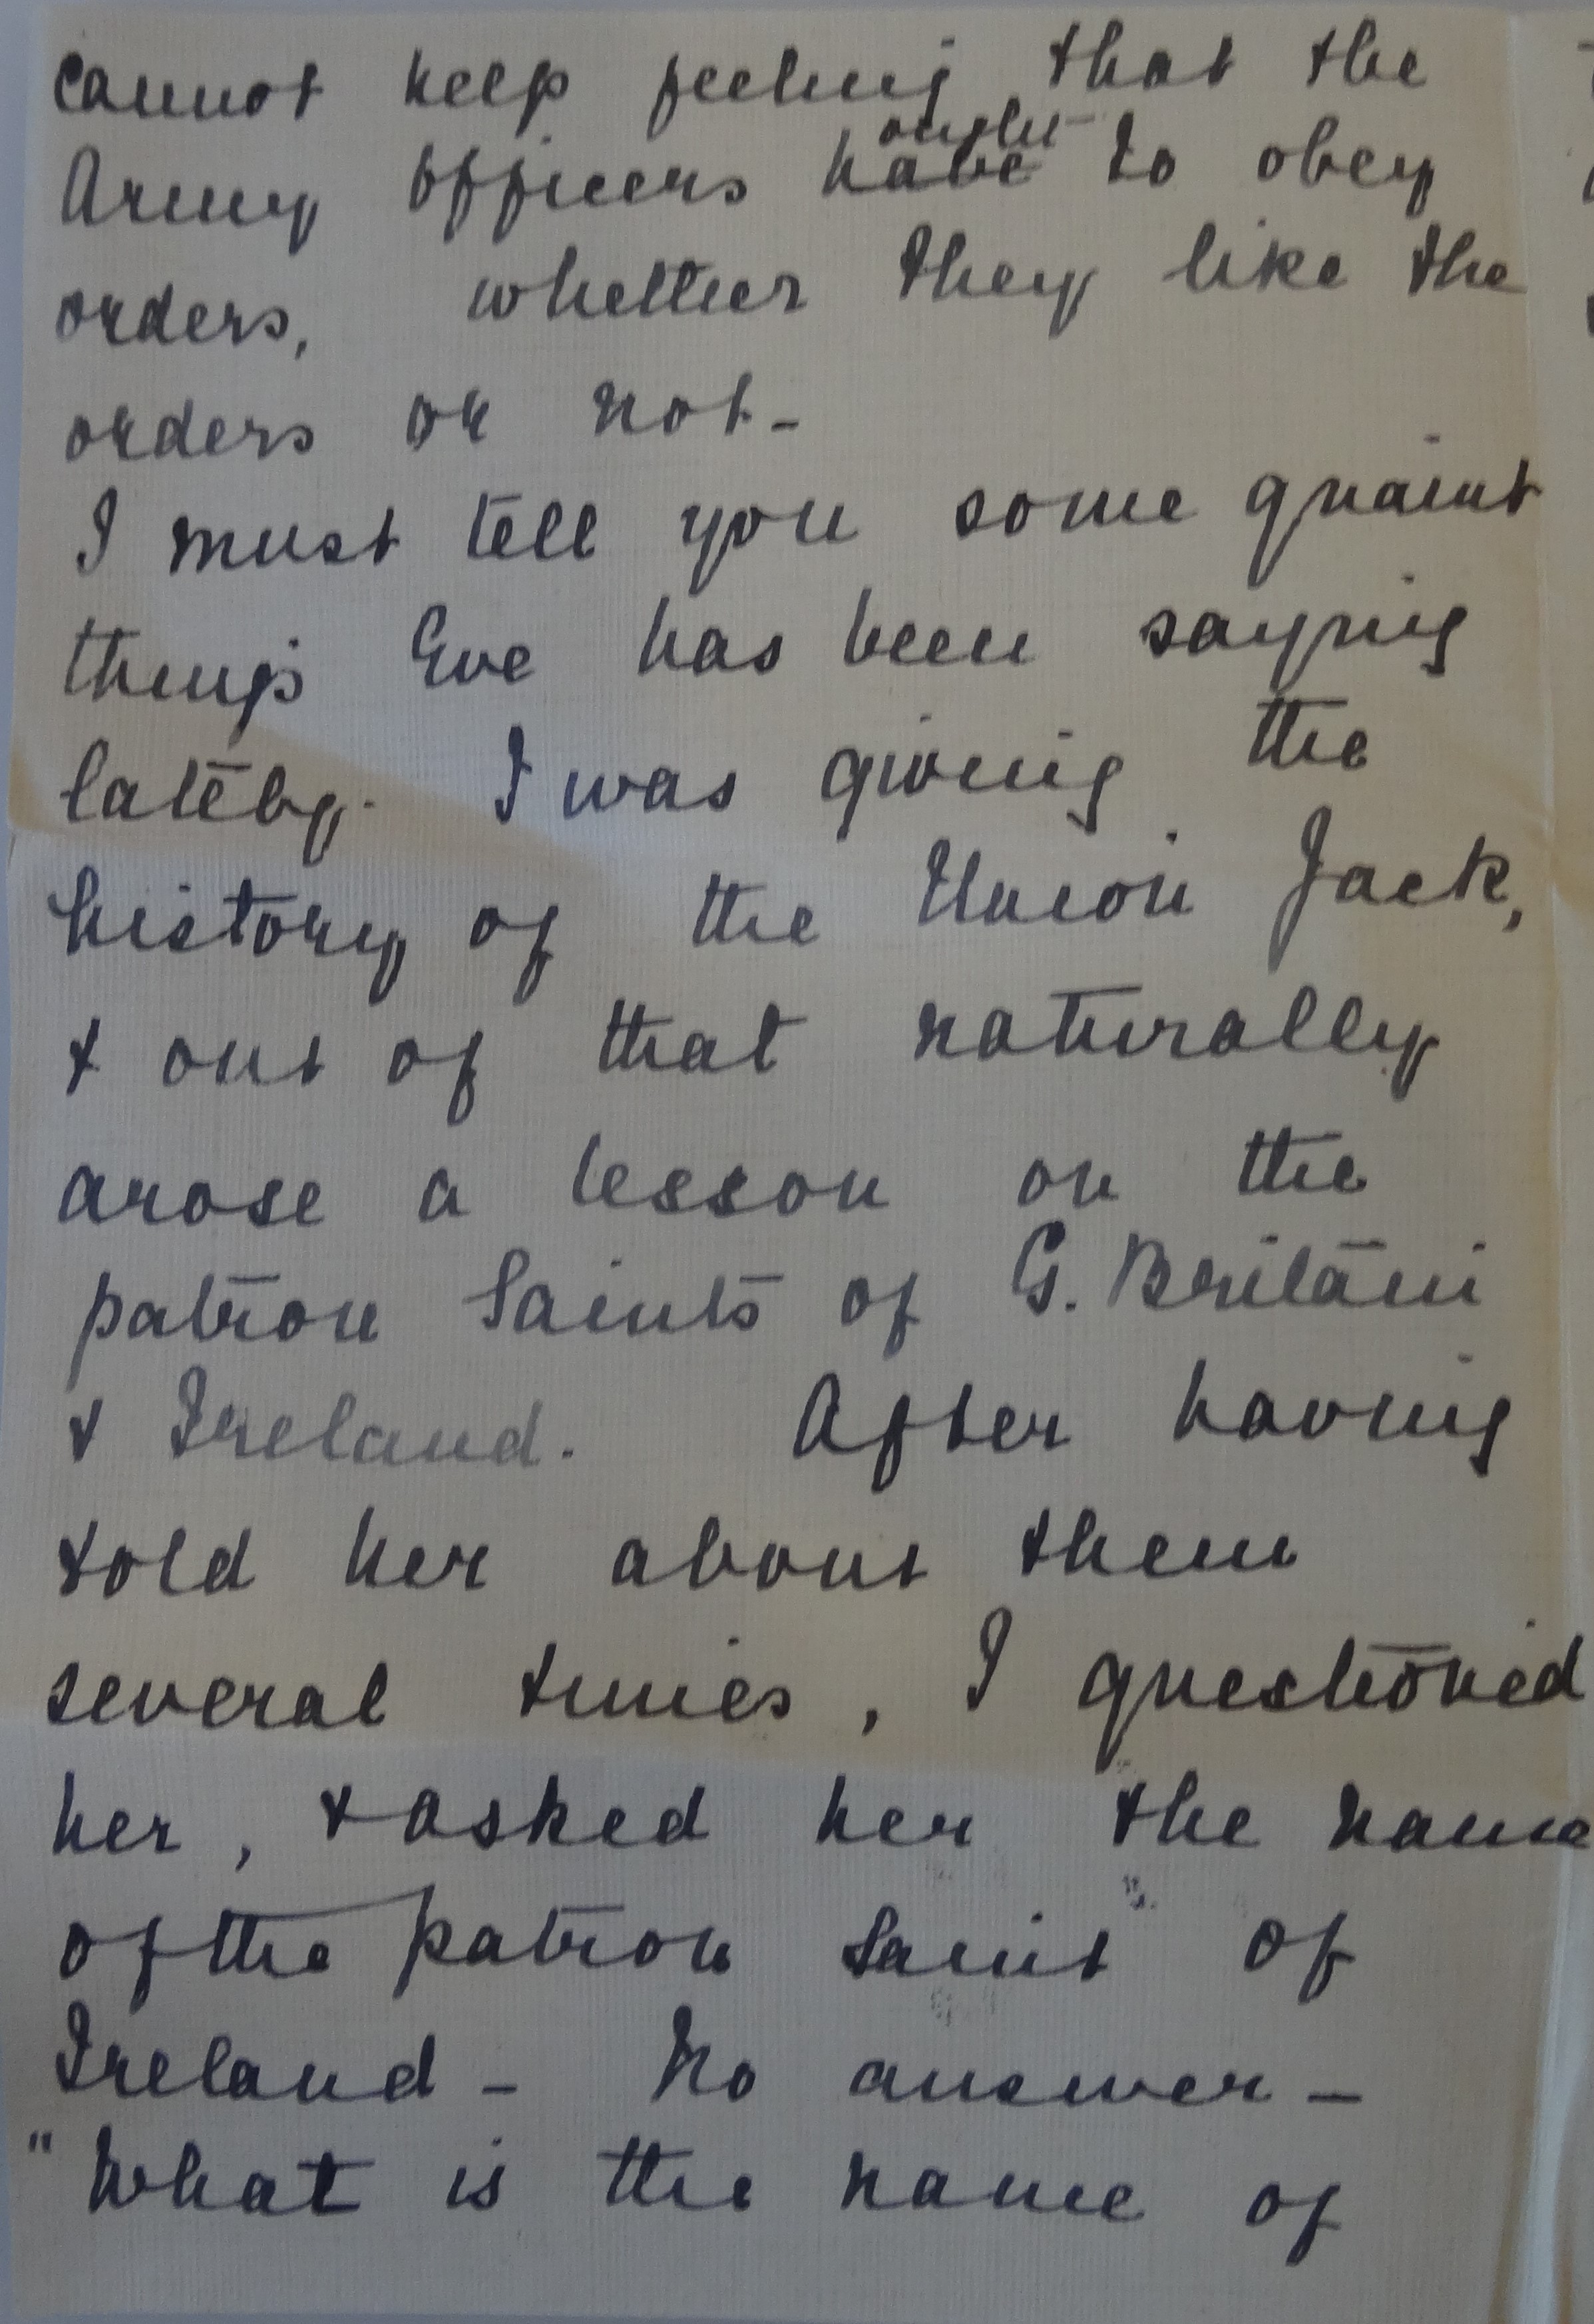 cannot keep feeling that the
ought
Army Officers have to obey
orders, whether they like the
orders or not -
I must tell you some quaint
things Eve has been saying
lately. I was giving the
history of the Union Jack,
& out of that naturally
arose a lesson on the
patron Saints of G. Britain
& Ireland. After having
told her about them
several times, I questioned
her, & asked her the name
of the patron Saint of
Ireland - No answer -
"What is the name of